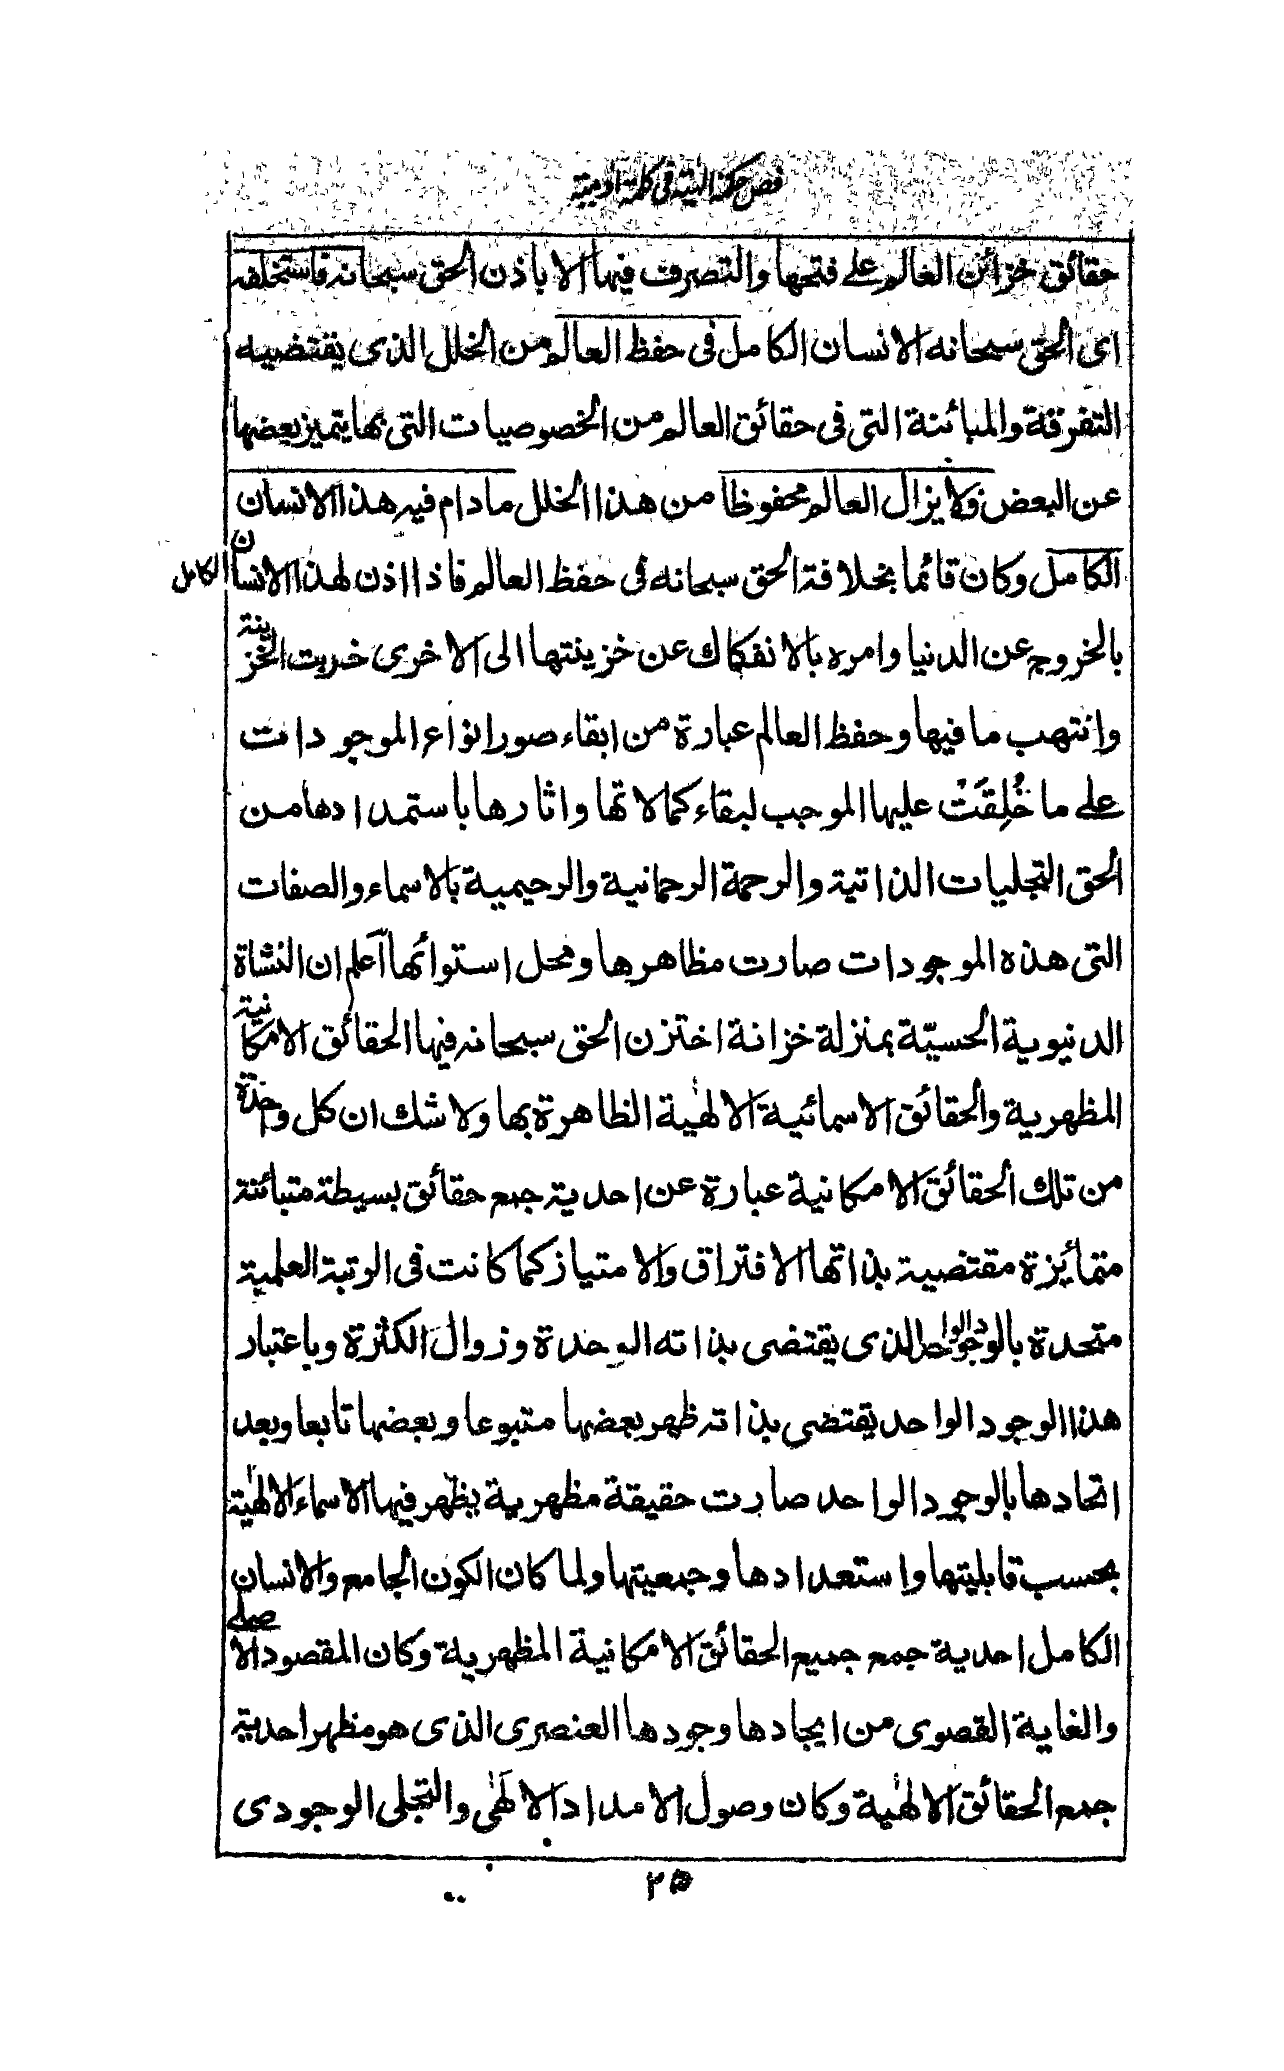 فص حكمة الهية في كلمة ادمية
حقائق خزائن العالم على فتحها والتصرف فيها الا باذن الحق سبحانه فاستخلفه
اى الحق سبحانه الانسان الكامل فى حفظ العالم من الخلل الذى يقتضيه
التفرقة والمبائنة التى فى حقائق العالم من الخصوصيات التى بها يتميز بعضها
عن البعض ولا يزال العالم محفوظا من هذا الخلل مادام فيه هذا الانسان
الكامل وكان قائما بخلافة الحق سبحانه فى حفظ العالم فاذا اذن لهذا الانسان الكامل
بالخروج عن الدنيا وامره بالانفكاك عن خزينتها الى الاخرى خربت الخزينة
وانتهب ما فيها وحفظ العالم عبارة من ابقاء صور انواع الموجودات
على ما خُلِقَتْ عليها الموجب لبقاء كمالاتها واثارها باستمدادها من
الحق التجليات الذاتية والرحمة الرحمانية والرحيمية بالاسماء والصفات
التى هذه الموجودات صارت مظاهرها ومحل استوائها اعلم ان النشاة
الدنيوية الحسيّة بمنزلة خزانة اختزن الحق سبحانه فيها الحقائق الامكانية
المظهرية والحقائق الاسمائية الالهية الظاهرة بها ولا شك ان كل واحدة
من تلك الحقائق الامكانية عبارة عن احدية جمع حقائق بسيطة متبائنة
متمائزة مقتضية بذاتها الافتراق والامتياز كما كانت فى الرتبة العلمية
متحدة بالوجود الواحد الذى يقتضى بذاته الوحدة وزوال الكثرة وباعتبار
هذا الوجود الواحد يقتضى بذاته ظهر بعضها متبوعا وبعضها تابعا وبعد
اتحادها بالوجود الواحد صارت حقيقة مظهرية يظهر فيها الاسماء الالهية
بحسب قابليتها واستعدادها وجمعيتها ولما كان الكون الجامع والانسان
الكامل احدية جمع جميع الحقائق الامكانية المظهرية وكان المقصود الاصلى
والغاية القصوى من ايجادها وجودها العنصرى الذى هو مظهر احدية
جمع الحقائق الالهية وكان وصول الامداد الالهى والتجلى الوجودى
٢٥